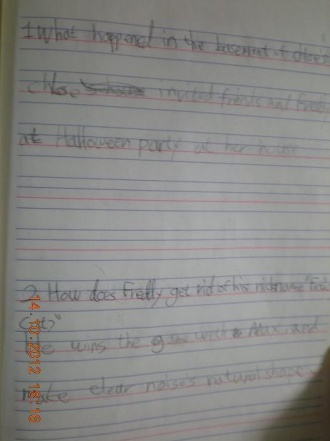 1. What happened in the basement of chloe's
chloe invited friends and Freddy
at Halloween party at her house
2. How does Freddy get rid of his nickname "Fraidy
Cat"
He wins the game with Max, and
make clear noise's natural shape.
14.10.2012 18:18